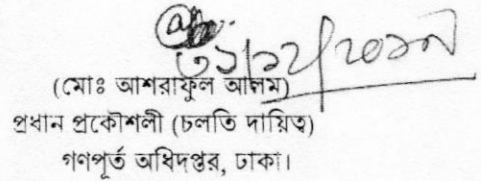 ৩১/১২/২০১৯
(মোঃ আশরাফুল আলম)
প্রধান প্রকৌশলী (চলতি দায়িত্ব)
গণপূর্ত অধিদপ্তর, ঢাকা।